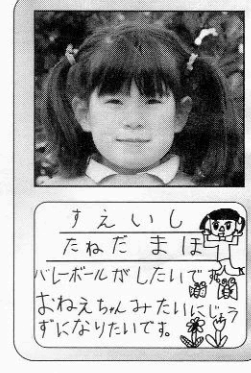 すえいし
たねだ まほ
バレーボールがしたいです。
おねえちゃんみたいにじょう
ずになりたいです。